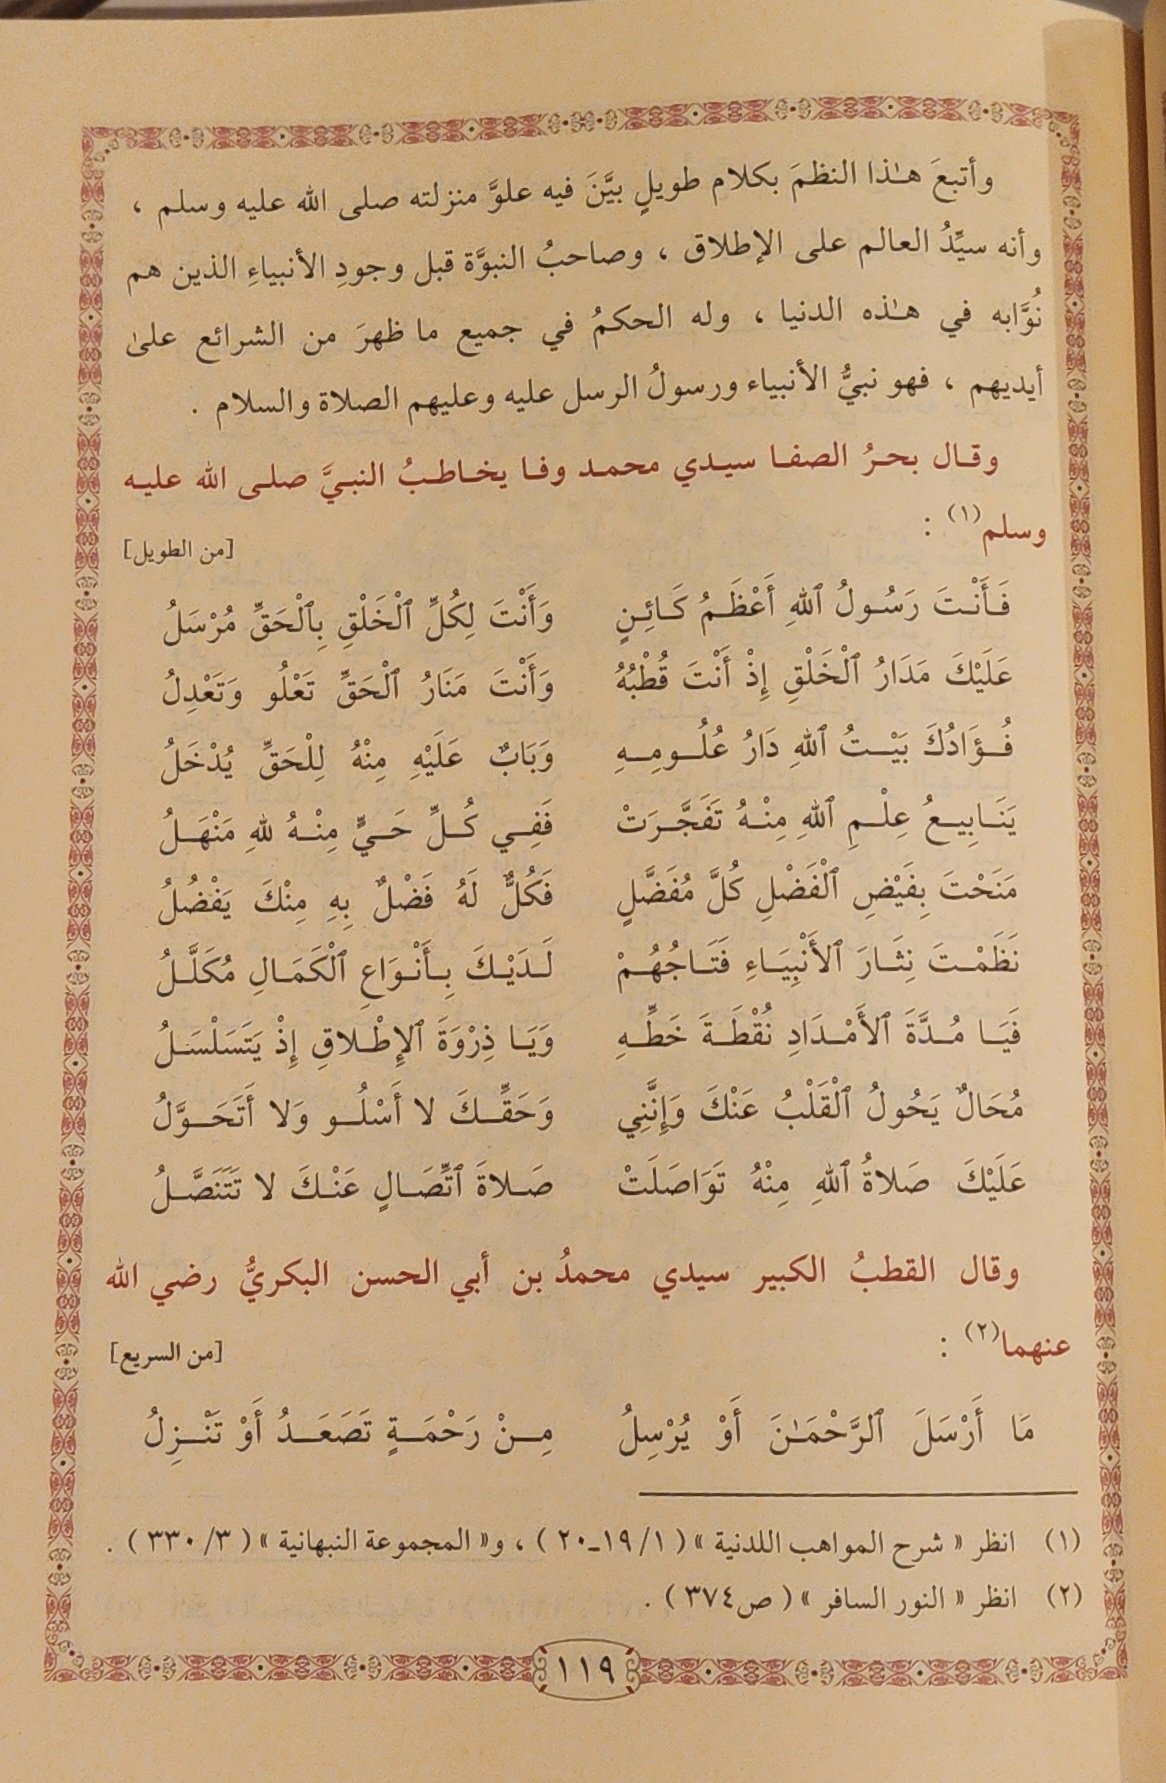 وأتبعَ هـٰذا النظمَ بكلام طويلٍ بيَّنَ فيه علوَّ منزلته صلى الله عليه وسلم ،
وأنه سيِّدُ العالم على الإطلاق ، وصاحبُ النبوَّة قبل وجودِ الأنبياءِ الذين هم
نُوَّابه في هـٰذه الدنيا ، وله الحكمُ في جميع ما ظهرَ من الشرائع علىٰ
أيديهم ، فهو نبيُّ الأنبياء ورسولُ الرسل عليه وعليهم الصلاة والسلام .
وقال بحرُ الصفا سيدي محمد وفا يخاطبُ النبيَّ صلى الله عليه
وسلم(١) :
[من الطويل]
فَأَنْتَ رَسُولُ ٱللهِ أَعْظَمُ كَائِنٍ وَأَنْتَ لِكُلِّ ٱلْخَلْقِ بِٱلْحَقِّ مُرْسَلُ
عَلَيْكَ مَدَارُ ٱلْخَلْقِ إِذْ أَنْتَ قُطْبُهُ وَأَنْتَ مَنَارُ ٱلْحَقِّ تَعْلُو وَتَعْدِلُ
فُؤَادُكَ بَيْتُ ٱللهِ دَارُ عُلُومِهِ وَبَابٌ عَلَيْهِ مِنْهُ لِلْحَقِّ يُدْخَلُ
يَنَابِيعُ عِلْمِ ٱللهِ مِنْهُ تَفَجَّرَتْ فَفِي كُلِّ حَيٍّ مِنْهُ للهِ مَنْهَلُ
مَنَحْتَ بِفَيْضِ ٱلْفَضْلِ كُلَّ مُفَضَّلٍ فَكُلٌّ لَهُ فَضْلٌ بِهِ مِنْكَ يَفْضُلُ
نَظَمْتَ نِثَارَ ٱلأَنْبِيَاءِ فَتَاجُهُمْ لَدَيْكَ بِأَنْوَاعِ ٱلْكَمَالِ مُكَلَّلُ
فَيَا مُدَّةَ ٱلأَمْدَادِ نُقْطَةَ خَطِّهِ وَيَا ذِرْوَةَ ٱلإِطْلاقِ إِذْ يَتَسَلْسَلُ
مُحَالٌ يَحُولُ ٱلْقَلْبُ عَنْكَ وَإِنَّنِي وَحَقِّكَ لا أَسْلُو وَلا أَتَحَوَّلُ
عَلَيْكَ صَلاةُ ٱللهِ مِنْهُ تَوَاصَلَتْ صَلاةَ ٱتِّصَالٍ عَنْكَ لا تَتَنَصَّلُ
وقال القطبُ الكبير سيدي محمدُ بن أبي الحسن البكريُّ رضي الله
عنهما(٢) :
[من السريع]
مَا أَرْسَلَ ٱلرَّحْمَـٰنَ أَوْ يُرْسِلُ مِنْ رَحْمَةٍ تَصَعَدُ أَوْ تَنْزِلُ
(١) انظر « شرح المواهب اللدنية » ( ١/ ١٩-٢٠ ) ، و« المجموعة النبهانية » ( ٣/ ٣٣٠ ) .
(٢) انظر « النور السافر » ( ص٣٧٤ ) .
١١٩